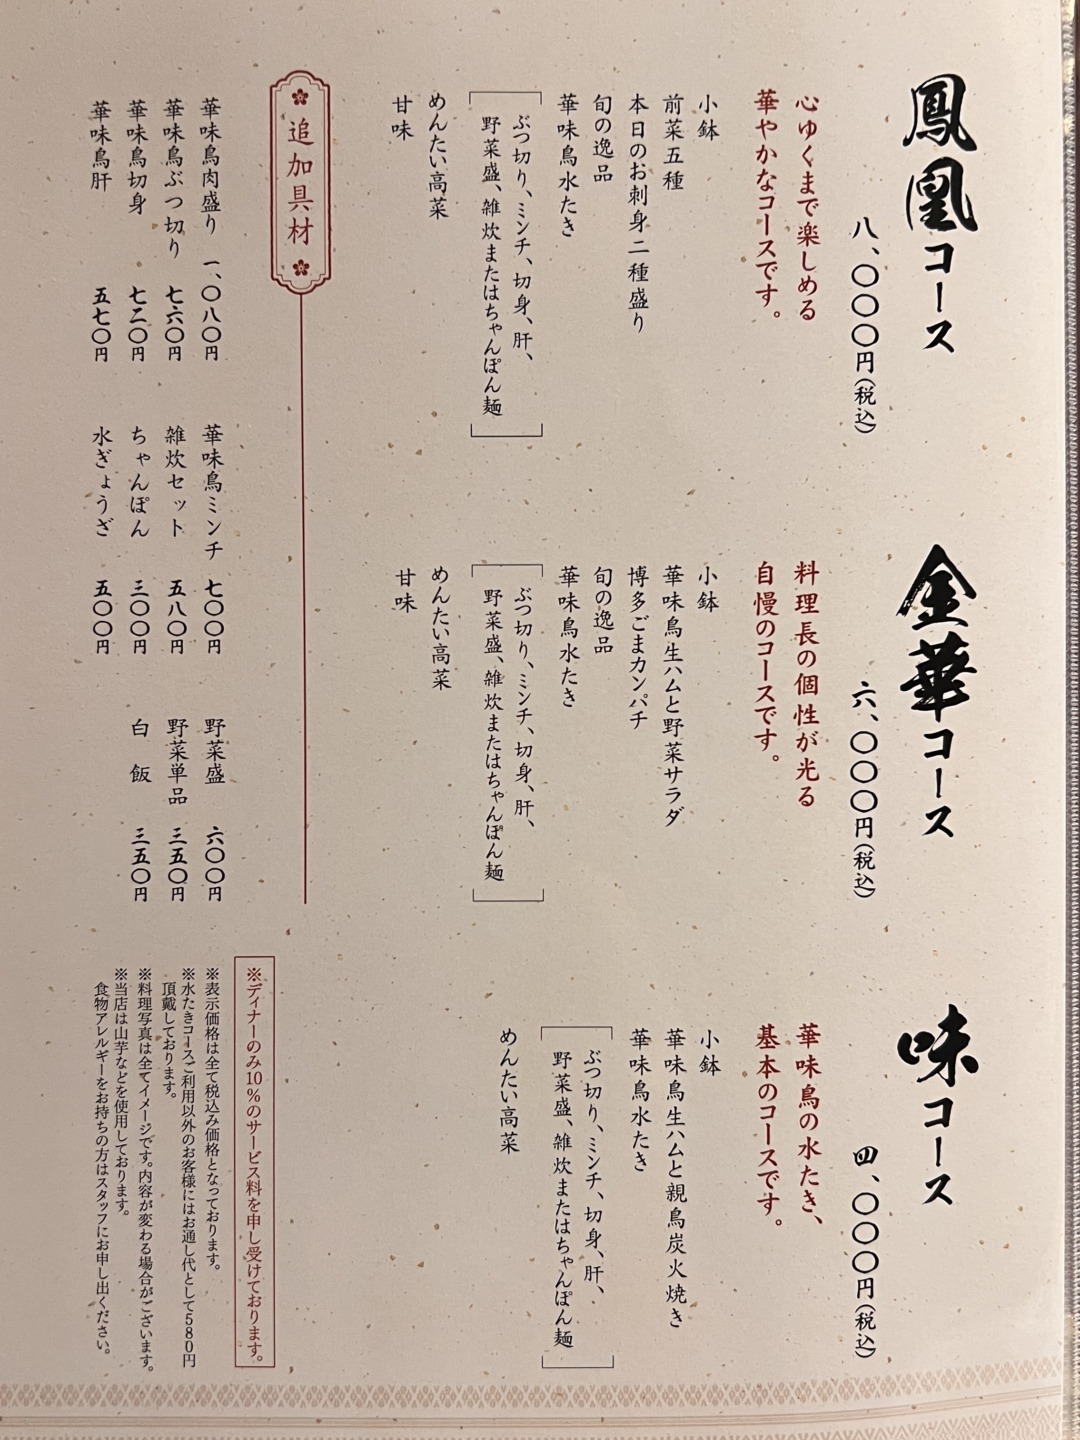 鳳凰コース
八、〇〇〇円(税込)
心ゆくまで楽しめる
華やかなコースです。
小鉢
前菜五種
本日のお刺身二種盛り
旬の逸品
華味鳥水たき
ぶつ切り、ミンチ、切身、肝、
野菜盛、雑炊またはちゃんぽん麺
めんたい高菜
甘味
金華コース
六、〇〇〇円(税込)
料理長の個性が光る
自慢のコースです。
小鉢
華味鳥生ハムと野菜サラダ
博多ごまカンパチ
旬の逸品
華味鳥水たき
ぶつ切り、ミンチ、切身、肝、
野菜盛、雑炊またはちゃんぽん麺
めんたい高菜
甘味
味コース
四、〇〇〇円(税込)
華味鳥の水たき、
基本のコースです。
小鉢
華味鳥生ハムと親鳥炭火焼き
華味鳥水たき
ぶつ切り、ミンチ、切身、肝、
野菜盛、雑炊またはちゃんぽん麺
めんたい高菜
追加具材
華味鳥肉盛り 一、〇八〇円
華味鳥ぶつ切り 七六〇円
華味鳥切身 七二〇円
華味鳥肝 五七〇円
華味鳥ミンチ 七〇〇円
雑炊セット 五八〇円
ちゃんぽん 三〇〇円
水ぎょうざ 五〇〇円
野菜盛 六〇〇円
野菜単品 三五〇円
白飯 三五〇円
※ディナーのみ10%のサービス料を申し受けております。
※表示価格は全て税込み価格となっております。
※水たきコースご利用以外のお客様にはお通し代として580円
頂戴しております。
※料理写真は全てイメージです。内容が変わる場合がございます。
※当店は山芋などを使用しております。
食物アレルギーをお持ちの方はスタッフにお申し出ください。